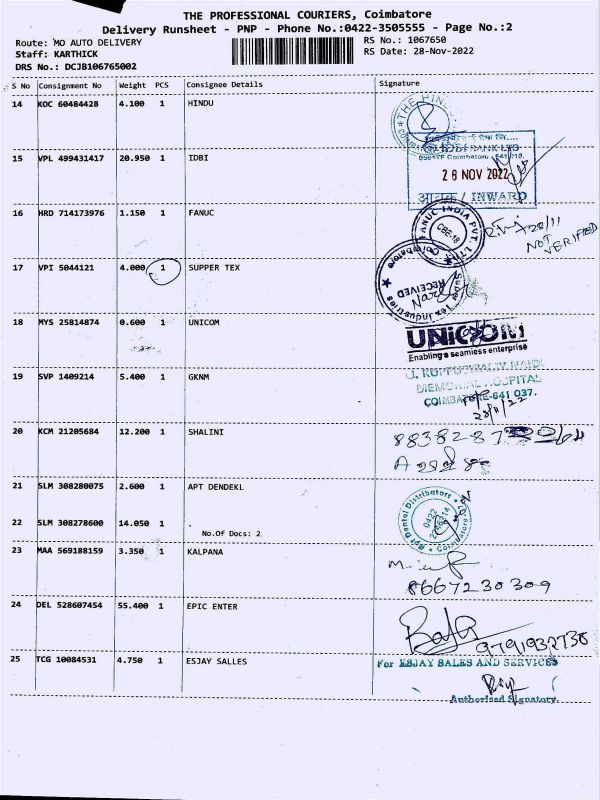 THE PROFESSIONAL COURIERS, Coimbatore
Delivery Runsheet - PNP - Phone No.:0422-3505555 - Page No.:2
Route: MO AUTO DELIVERY
RS No.: 1067650
Staff: KARTHICK
RS Date: 28-Nov-2022
DRS No.: DCJB106765002
S No Consignment No Weight PCS Consignee Details Signature
14 KOC 60484428 4.100 1 HINDU
THE HINDU
15 VPL 499431417 20.950 1 IDBI
IDBI BANK LTD
Coimbatore 641018.
28 NOV 2022
INWARD
16 HRD 714173976 1.150 1 FANUC
FANUC INDIA PVT. LTD.
CBE-18
28/11
NOT VERIFIED
17 VPI 5044121 4.000 1 SUPPER TEX
Super Tex Industries
Coimbatore
RECEIVED
18 MYS 25814874 0.600 1 UNICOM
UNICOM
Enabling a seamless enterprise
19 SVP 1409214 5.400 1 GKNM
G. KUPPUSWAMY NAIDU
MEMORIAL HOSPITAL
COIMBATORE-641 037.
28/11/22
20 KCM 21205684 12.200 1 SHALINI
21 SLM 308280075 2.600 1 APT DENDEKL
Dental Distributors
0422
Coimbatore
22 SLM 308278600 14.050 1 .
No.Of Docs: 2
23 MAA 569188159 3.350 1 KALPANA
8667230309
24 DEL 528607454 55.400 1 EPIC ENTER
9791932738
25 TCG 10084531 4.750 1 ESJAY SALLES
For ESJAY SALES AND SERVICES
Authorised Signatory.